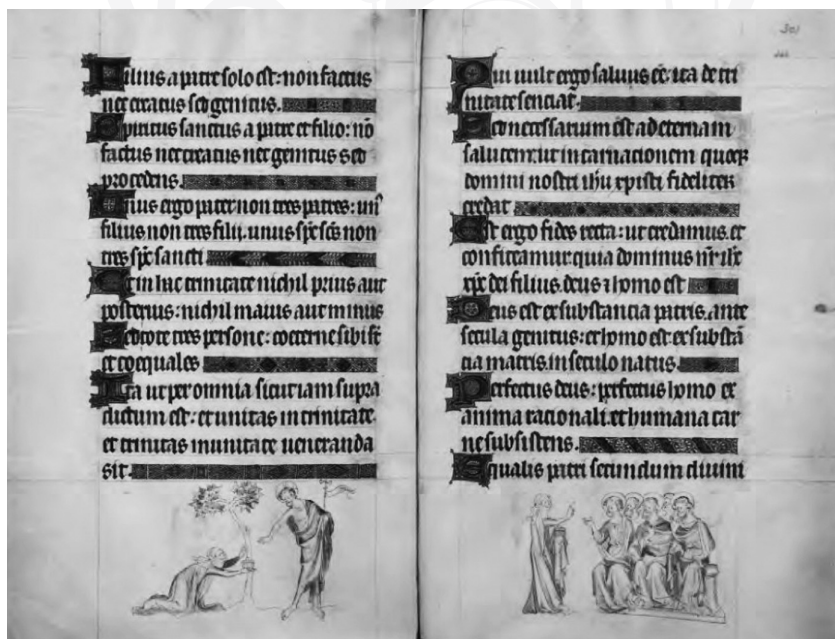 Filius a patre solo est: non factus
nec creatus sed genitus.
Spiritus sanctus a patre et filio: nō
factus nec creatus nec genitus sed
procedens.
Unus ergo pater non tres patres: un
filius non tres filii. unus spc scs non
tres spc sancti
Et in hac trinitate nichil prius aut
posterius: nichil maius aut minus
Sed tote tres persone: coeterne sibi st
et coequales
Ita ut per omnia sicut iam supra
dictum est: et unitas in trinitate.
et trinitas in unitate ueneranda
sit.
301
Qui uult ergo saluus eē: ita de tri
nitate senciat.
Sed necessarium est ad eternam
salutem: ut incarnacionem quoq
domini nostri ihu xpisti fideliter
credat
Est ergo fides recta: ut credamus. et
confiteamur quia dominus nr ihc
xpc dei filius. deus & homo est
Deus est ex substancia patris. ante
secula genitus: et homo est ex substā
cia matris. in seculo natus.
Perfectus deus: perfectus homo ex
anima racionali. et humana car
ne subsistens.
Equalis patri secundum diuini